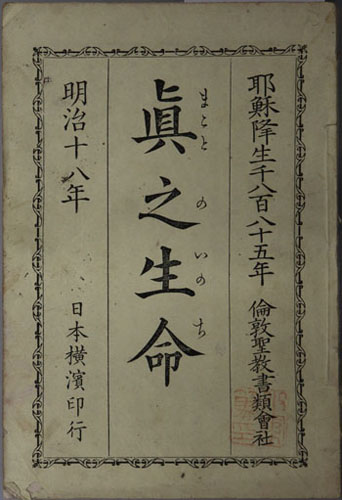 耶穌降生千八百八十五年 倫敦聖敎書類會社
眞之生命
まことのいのち
明治十八年
日本橫濱印行